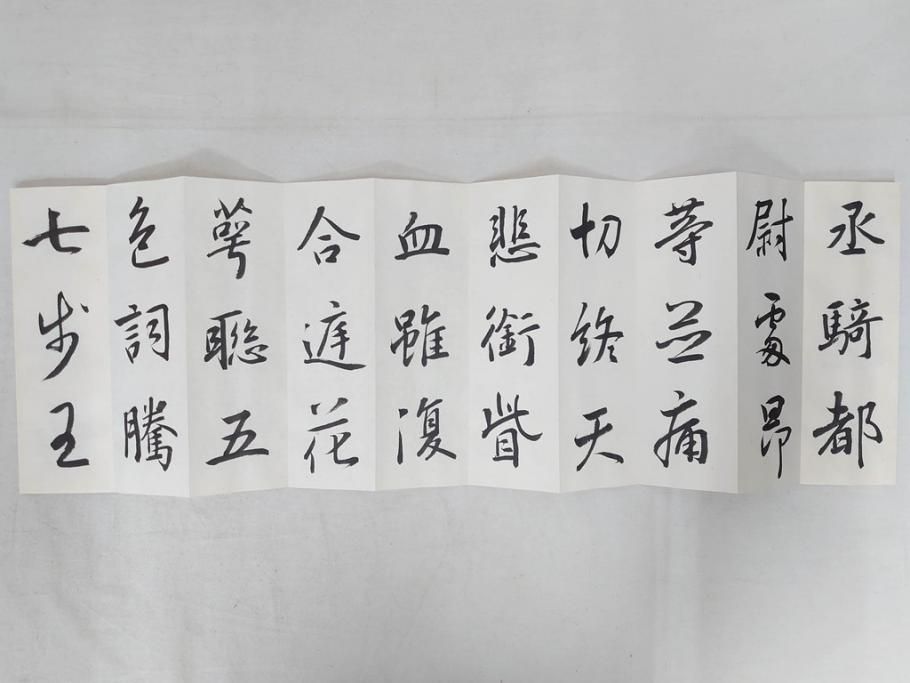 丞騎都
尉處昂
等並痛
切終天
悲銜眥
血雖復
合花
萼聯五
色詞騰
七步王